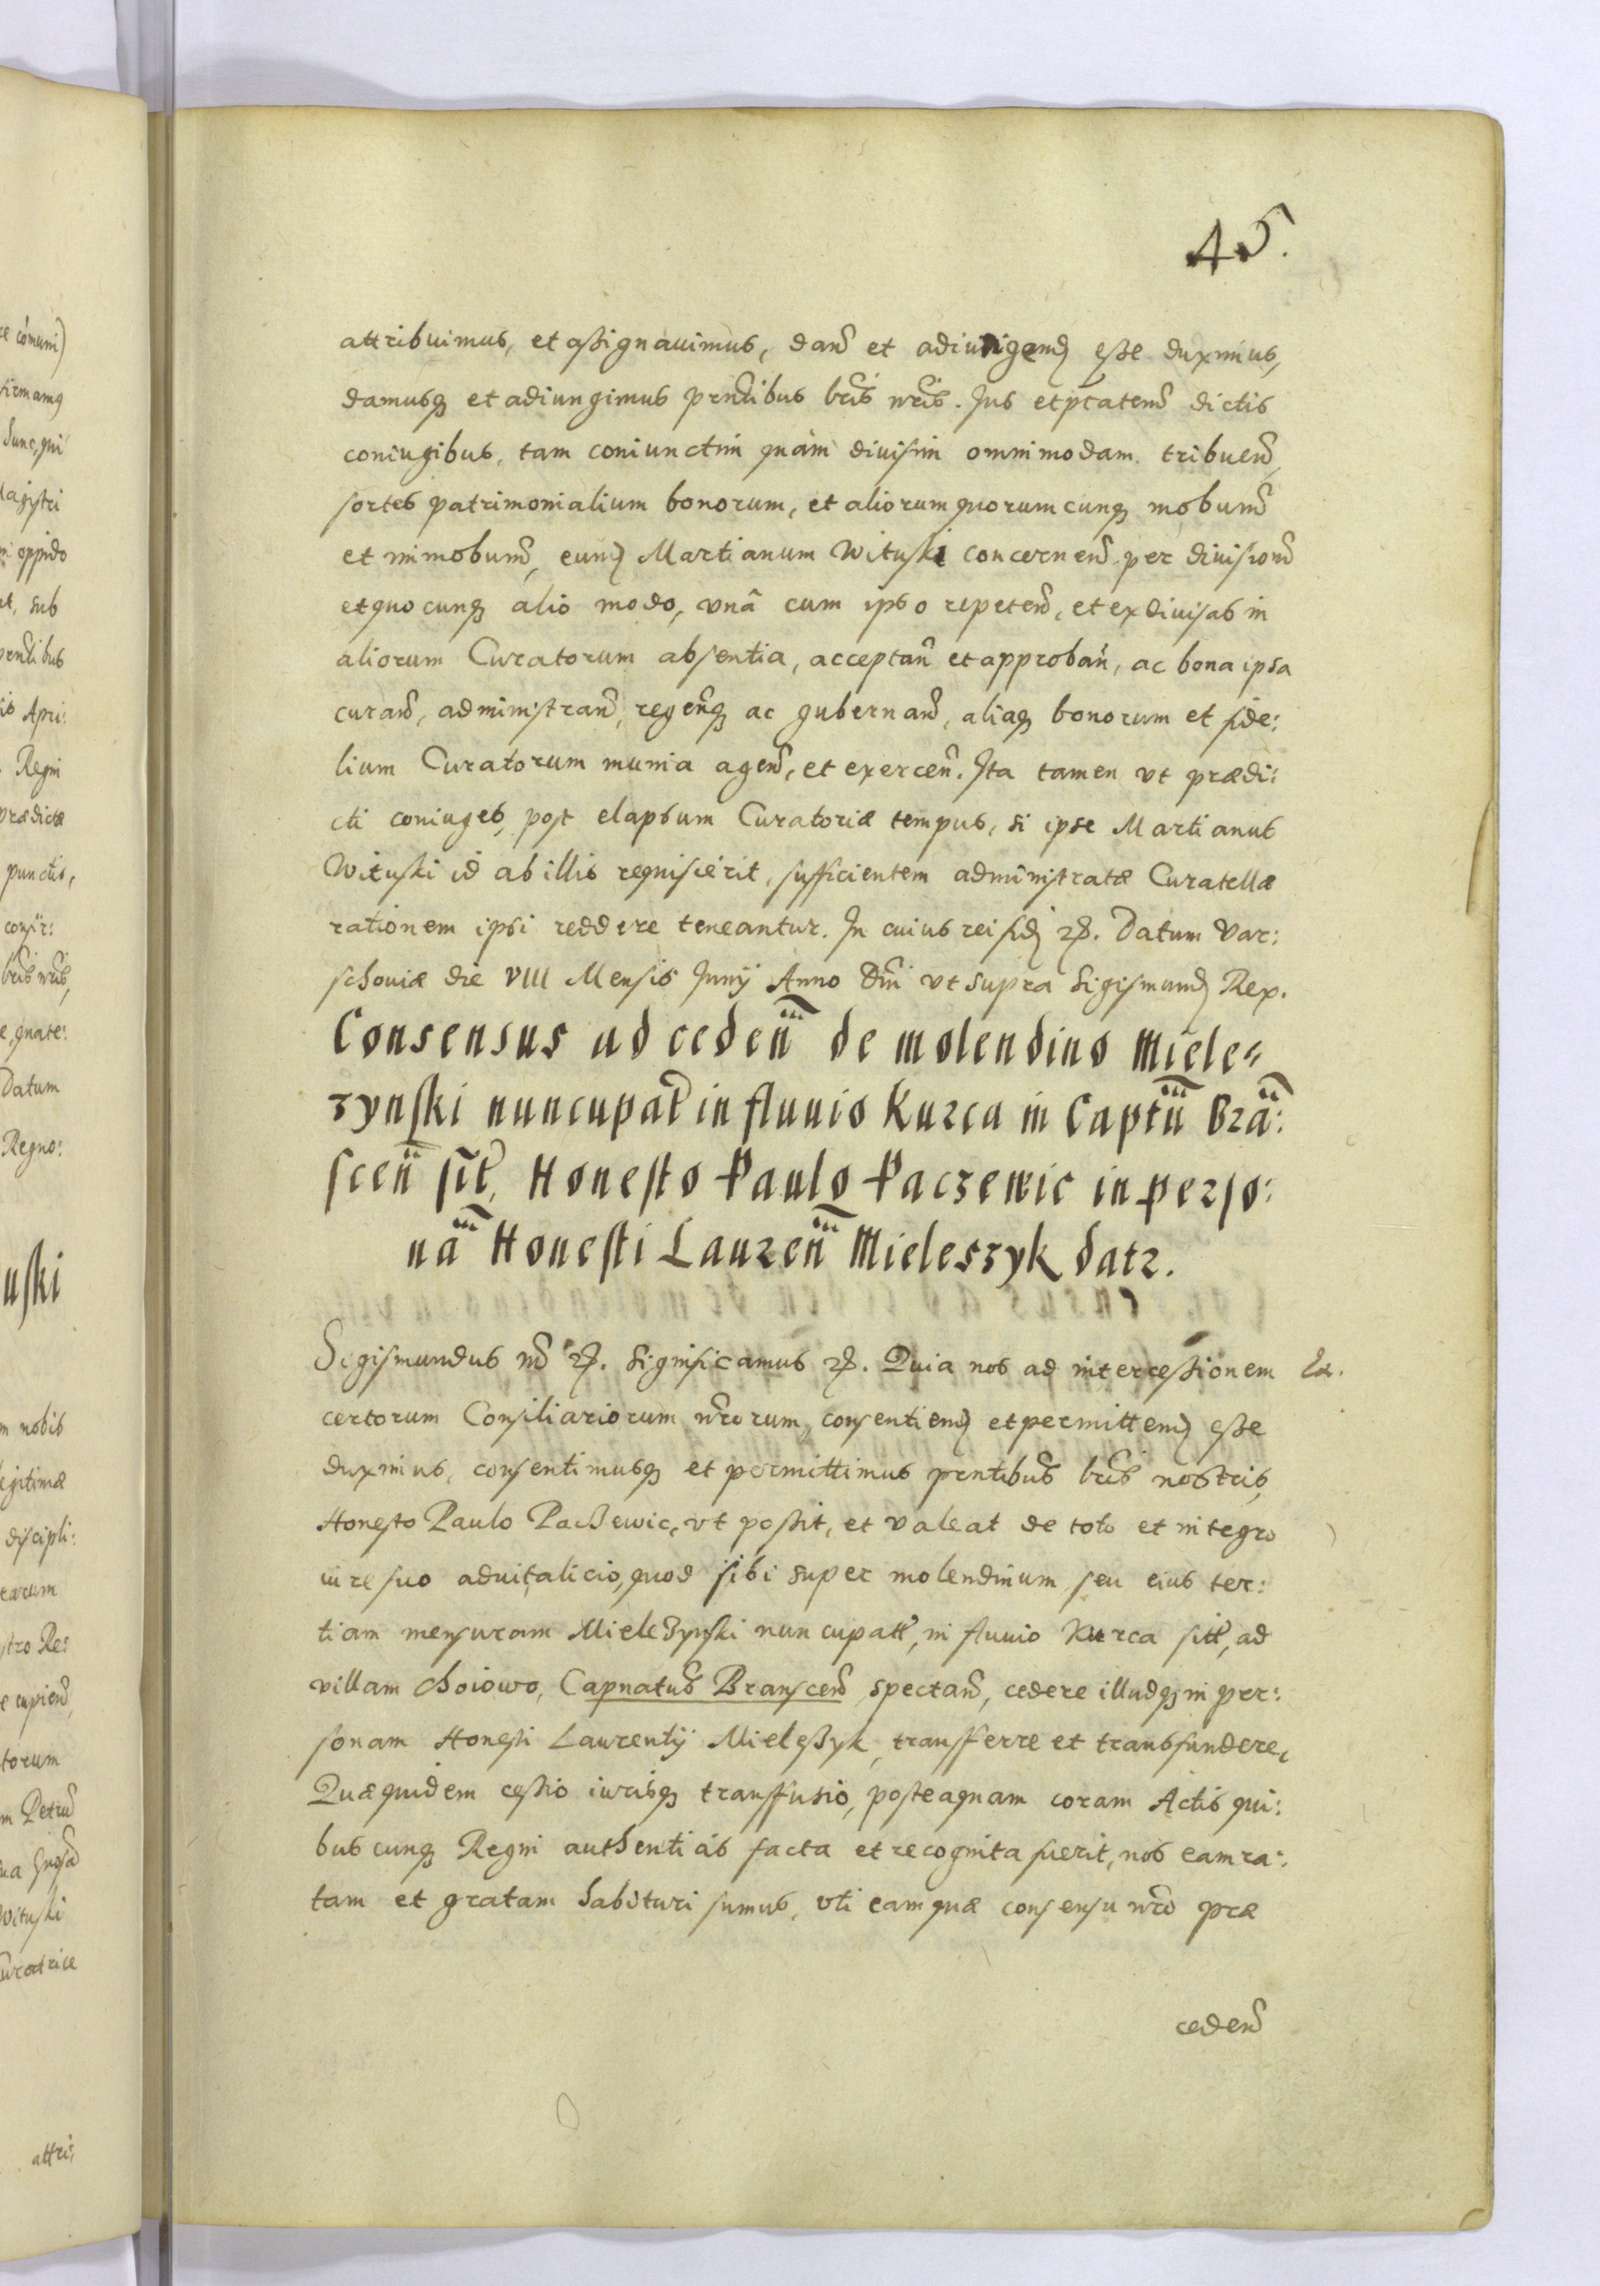 45.
attribuimus, et assignauimus, dand̃ et adiungend esse duximus,
damusq et adiungimus prntibus lris nris. Jus et ptatem dictis
coniugibus, tam coniunctim quàm diuisim omnimodam tribuend̃,
sortes patrimonialium bonorum, et aliorum quorumcunq mobiliu͂
et immobiliu͂, eund Martianum Wituski concernen͂ per diuision͂
et quocunq alio modo, vnâ cum ipso repetend̃, et ex diuisas in
aliorum Curatorum absentia, acceptan͂ et approban͂, ac bona ipsa
curand̃, administrand̃, regen͂q ac gubernand̃, aliaq bonorum et fide:
lium Curatorum munia agend̃, et exercen͂. Ita tamen vt prædi:
cti coniuges, post elapsum Curatoriæ tempus, si ipse Martianus
Wituski id ab illis requisierit, sufficientem administratæ Curatellæ
rationem ipsi reddere teneantur. In cuius rei fid etc. Datum Var:
schouiæ die VIII Mensis Junij Anno Dni vt supra Sigismund Rex.
Consensus ad ceden͂ de molendino Miele=
zynski nuncupat in fluuio Kurca in Captu͂ Bra͂:
scen͂ sit, Honesto Paulo Paczewic in perso:
na͂ Honesti Lauren͂ Mieleszyk datr.
Sigismundus 3us etc. Significamus etc. Quia nos ad intercessionem Ex.
certorum Consiliariorum nrorum, consentiend et permittend esse
duximus, consentimusq et permittimus prntibus lris nostris,
Honesto Paulo Pachewic, vt possit, et valeat de toto et integro
iure suo aduitalicio, quod sibi super molendinum seu eius ter:
tiam mensuram Mielezynski nuncupatt, in fluuio Kurca sitt, ad
villam Choiowo, Capnatus Branscen͂ spectand̃, cedere illudq in per:
sonam Honesti Laurentij Mieleszyk, transferre et transfundere,
Quæquidem cessio iurisq transfusio, posteaquam coram Actis qui:
buscunq Regni authenticis facta et recognita fuerit, nos eam ra:
tam et gratam habituri sumus, vti eam quæ consensu nro præ
ceden͂